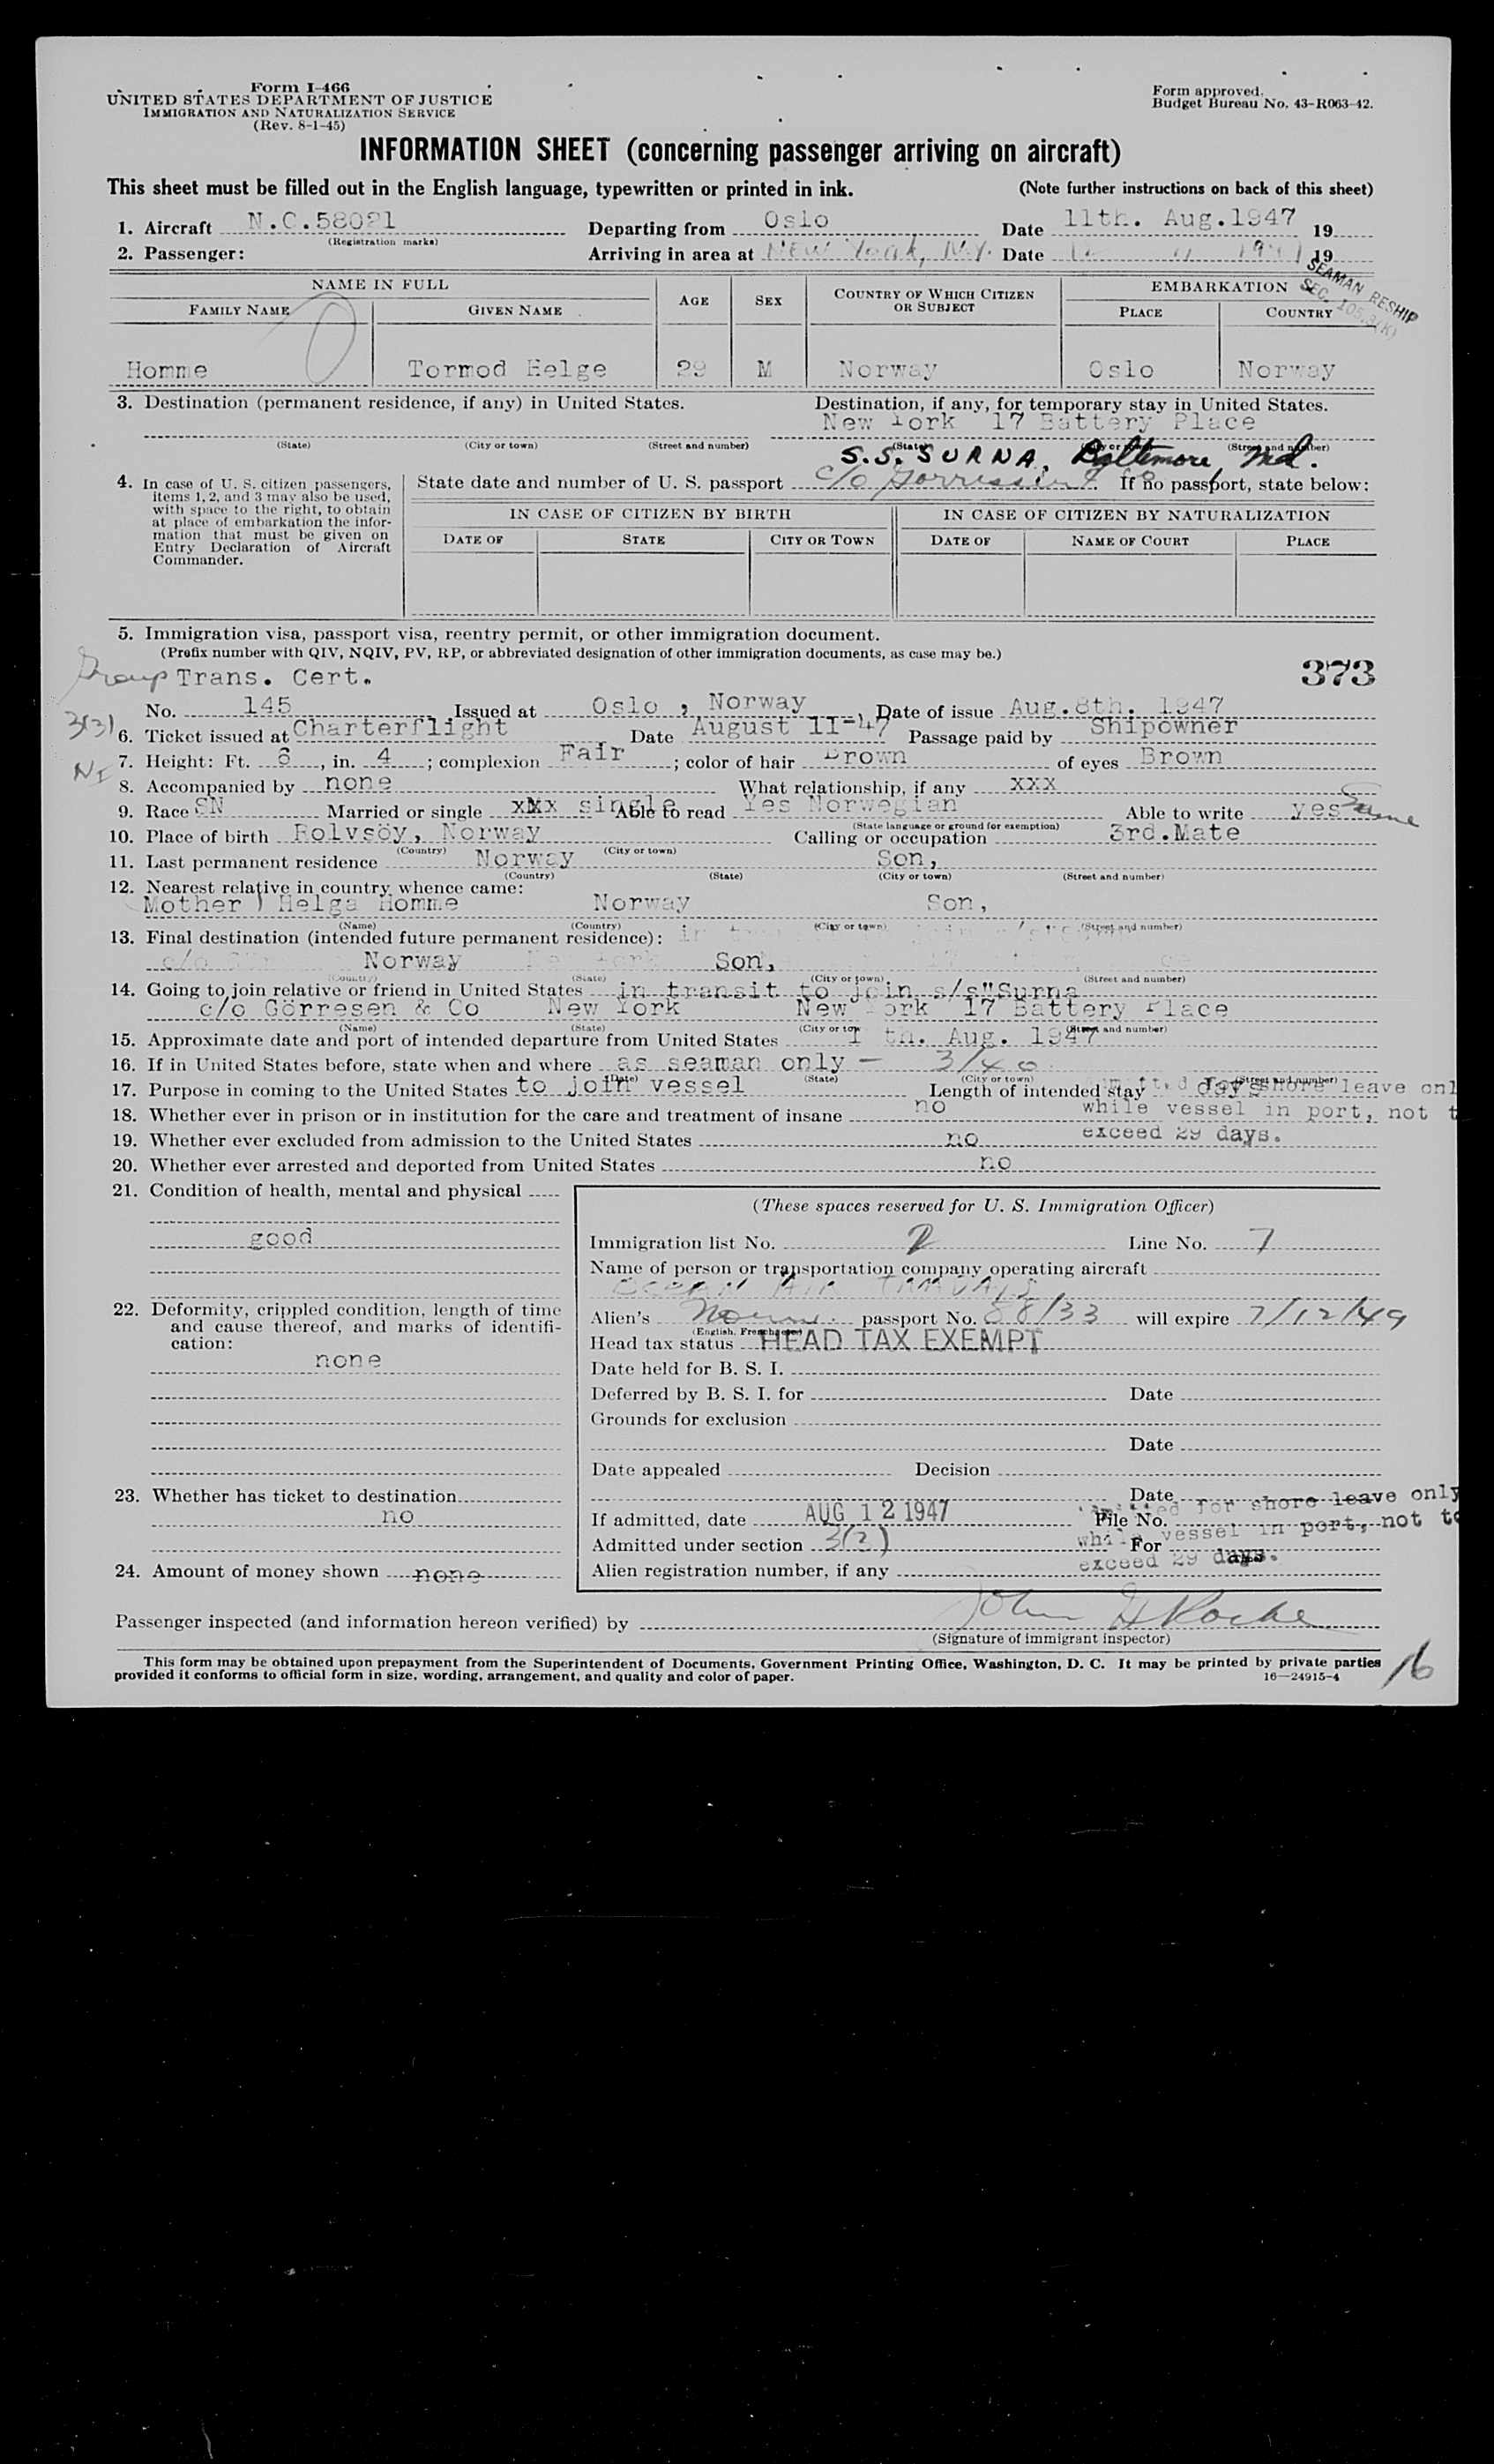 Form I-466
UNITED STATES DEPARTMENT OF JUSTICE
IMMIGRATION AND NATURALIZATION SERVICE
(Rev. 8-1-45)
Form approved.
Budget Bureau No. 43-R063-42.
INFORMATION SHEET (concerning passenger arriving on aircraft)
This sheet must be filled out in the English language, typewritten or printed in ink. (Note further instructions on back of this sheet)
1. Aircraft N.C.58021 Departing from Oslo Date 11th. Aug.1947 19
(Registration marks)
2. Passenger: Arriving in area at New York, N.Y. Date 19
SEAMAN RESHIP
SEC. 105.3(K)
NAME IN FULL AGE SEX COUNTRY OF WHICH CITIZEN OR SUBJECT EMBARKATION
FAMILY NAME GIVEN NAME PLACE COUNTRY
Homme Tormod Helge 29 M Norway Oslo Norway
3. Destination (permanent residence, if any) in United States. Destination, if any, for temporary stay in United States.
New York 17 Battery Place
(State) (City or town) (Street and number) (State) (City or town) (Street and number)
S.S. SURNA, Baltimore, Md.
4. In case of U. S. citizen passengers, items 1, 2, and 3 may also be used, with space to the right, to obtain at place of embarkation the information that must be given on Entry Declaration of Aircraft Commander.
State date and number of U. S. passport c/o If no passport, state below:
IN CASE OF CITIZEN BY BIRTH IN CASE OF CITIZEN BY NATURALIZATION
DATE OF STATE CITY OR TOWN DATE OF NAME OF COURT PLACE
5. Immigration visa, passport visa, reentry permit, or other immigration document.
(Prefix number with QIV, NQIV, PV, RP, or abbreviated designation of other immigration documents, as case may be.)
373
Group Trans. Cert.
No. 145 Issued at Oslo, Norway Date of issue Aug.8th. 1947
3(3)
6. Ticket issued at Charterflight Date August 11-47 Passage paid by Shipowner
7. Height: Ft. 6, in. 4; complexion Fair; color of hair Brown of eyes Brown
NI
8. Accompanied by none What relationship, if any xxx
9. Race SN Married or single xMx single Able to read Yes Norwegian Able to write yes Same
(State language or ground for exemption)
10. Place of birth Rolvsöy, Norway Calling or occupation 3rd.Mate
(Country) (City or town)
11. Last permanent residence Norway Son,
(Country) (State) (City or town) (Street and number)
12. Nearest relative in country whence came:
Mother) Helga Homme Norway Son,
(Name) (Country) (City or town) (Street and number)
13. Final destination (intended future permanent residence):
Norway Son,
(Country) (State) (City or town) (Street and number)
14. Going to join relative or friend in United States in transit to join s/s"Surna
c/o Görresen & Co New York New York 17 Battery Place
(Name) (State) (City or town) (Street and number)
15. Approximate date and port of intended departure from United States th. Aug. 1947
16. If in United States before, state when and where as seaman only - 3/40
(Date) (State) (City or town) (Street and number)
17. Purpose in coming to the United States to join vessel Length of intended stay days shore leave onl
while vessel in port, not t
exceed 29 days.
18. Whether ever in prison or in institution for the care and treatment of insane no
19. Whether ever excluded from admission to the United States no
20. Whether ever arrested and deported from United States no
21. Condition of health, mental and physical
good
22. Deformity, crippled condition, length of time and cause thereof, and marks of identification:
none
23. Whether has ticket to destination
no
24. Amount of money shown none
(These spaces reserved for U. S. Immigration Officer)
Immigration list No. 2 Line No. 7
Name of person or transportation company operating aircraft
OCEAN AIR TRAMWAYS
Alien's passport No. 88/33 will expire 7/12/49
Head tax status HEAD TAX EXEMPT
Date held for B. S. I.
Deferred by B. S. I. for Date
Grounds for exclusion
Date
Date appealed Decision
Date
for shore leave only
If admitted, date AUG 12 1947 File No.
while vessel in port, not to
Admitted under section 3(2) For
exceed 29 days.
Alien registration number, if any
Passenger inspected (and information hereon verified) by John Roche
(Signature of immigrant inspector)
This form may be obtained upon prepayment from the Superintendent of Documents, Government Printing Office, Washington, D. C. It may be printed by private parties
provided it conforms to official form in size, wording, arrangement, and quality and color of paper. 16—24915-4
16